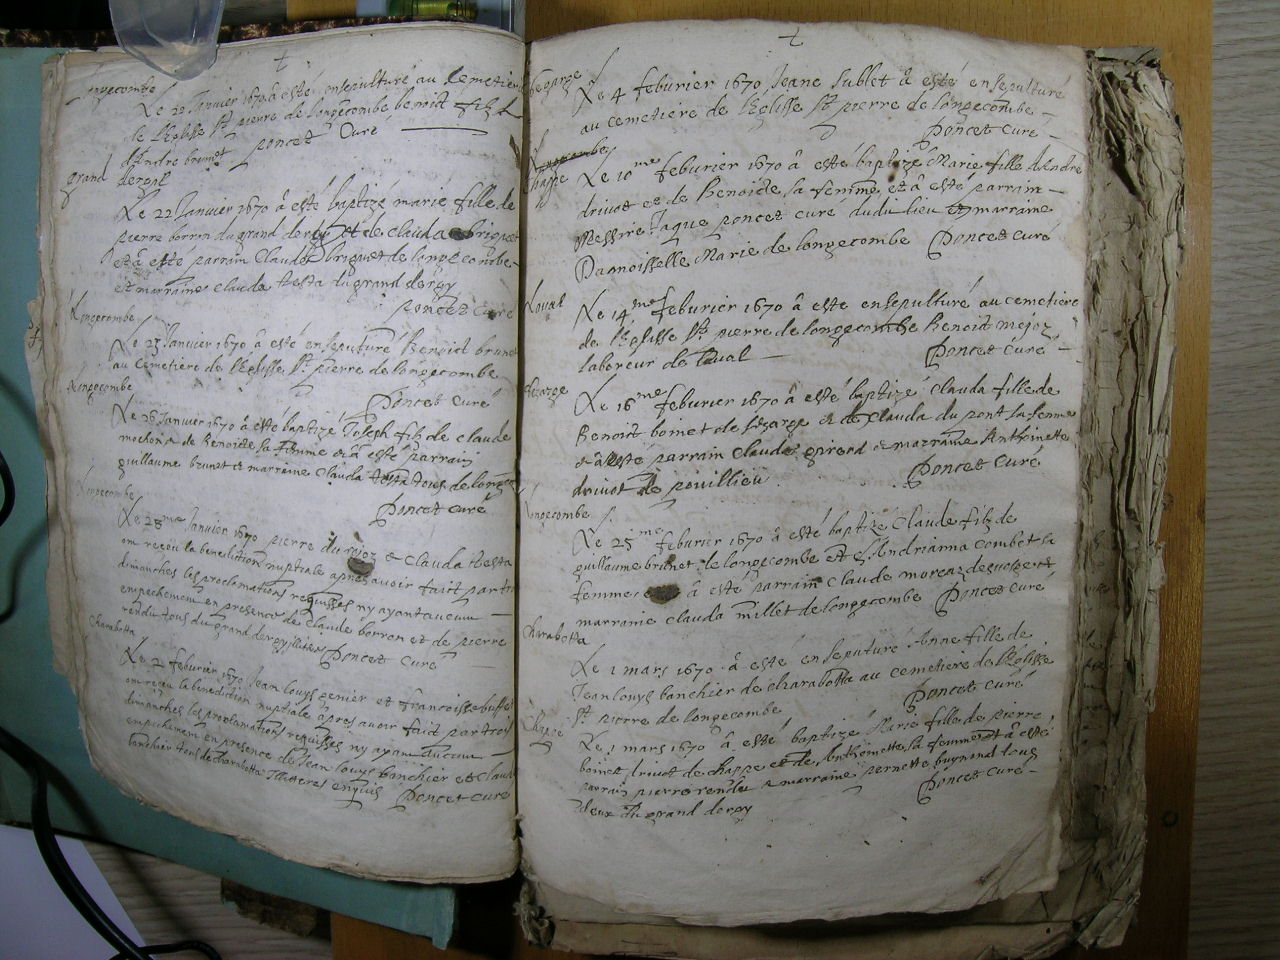 Longecombe
Le 22 Janvier 1670 â esté ensepulturé au Cemetiere
de l'Eglisse St pierre de longecombe benoit filz
d'Andre brunet poncet Curé
grand dergil
Le 22 Janvier 1670 â esté baptizé marie fille de
pierre borron du grand dergy et de clauda briquet
et â esté parrain Claude briguet de longecombe
et marraine clauda testa du grand dergy
poncet curé
Longecombe
Le 23 Janvier 1670 â esté ensepulturé Benoist brunet
au Cemetiere de l'Eglisse St pierre de longecombe
Poncet curé
Longecombe
Le 26 Janvier 1670 â esté baptizé Joseph filz de claude
de Benoite sa femme & â esté parrain
guillaume brunet & marraine Clauda testa tous de longecombe
Poncet curé
Longecombe
Le 28me Janvier 1670 pierre du & Clauda testa
on reçeu la benediction nuptiale apres avoir fait par trois
dimanches les proclamations requisses ny ayant aucun
empechement en presence de Claude borron et de pierre
rendu tous du grand dergy Poncet curé
Charabotta
Le 2 feburier 1670 Jean louys genier et francoisse buffet
on reçeu la benediction nuptiale apres avoir fait par trois
dimanches les proclamations requisses ny ayant aucun
empechement en presence de Jean louys banchier et Claude
banchier tous de charabotta Poncet curé
Le 4 feburier 1670 Jeane sublet â esté ensepulturé
au cemetiere de l'Eglisse St pierre de longecombe
Poncet Curé
Longecombe
Chappe
Le 10me feburier 1670 â esté baptizé Marie fille d'Andre
drivot et de Benoiste sa femme et â esté parrain
Messire Jaque poncet curé dudit lieu et marraine
Damoisselle Marie de longecombe Poncet Curé
Loual
Le 14me feburier 1670 â esté ensepulturé au cemetiere
de l'Eglisse St pierre de longecombe Benoit mejoz
laboreur de loual
Poncet Curé
Le 16me feburier 1670 â esté baptizé Clauda fille de
Benoit bomet de & de Clauda du pont sa femme
& â esté parrain claude girerd & marraine Anthoinette
drivot de pouillieu Poncet Curé
Longecombe
Le 25me feburier 1670 â esté baptizé Claude filz de
guillaume brunet de longecombe et d'Andrianna combet sa
femme & â esté parrain claude
marraine clauda millet de longecombe Poncet Curé
Charabotta
Le 1 mars 1670 â esté ensepulturé Anne fille de
Jean louys banchier de charabotta au cemetiere de l'Eglisse
St pierre de longecombe Poncet Curé
Chappe
Le 1 mars 1670 â esté baptizé Marie fille de pierre
drivot de chappe et de Anthoinette sa femme et â esté
parrain pierre rendu & marraine pernette tous
deux du grand dergy Poncet curé